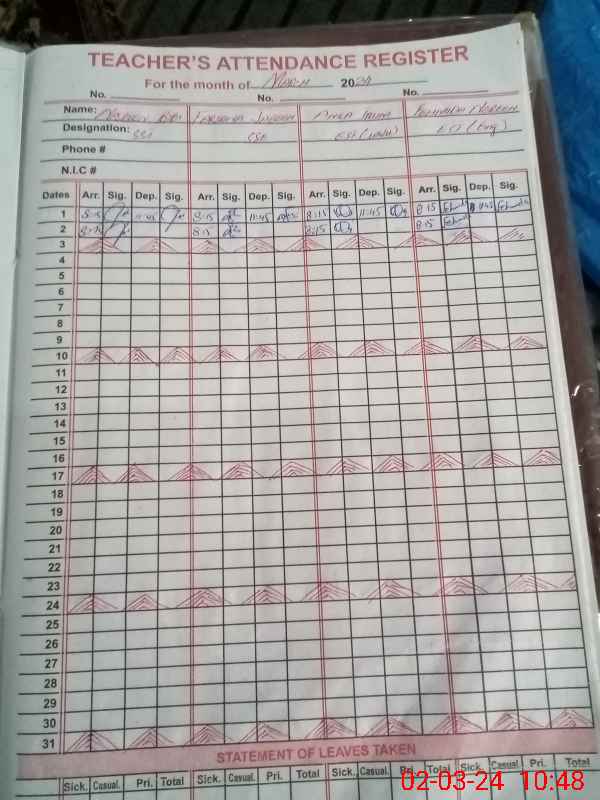 TEACHER'S ATTENDANCE REGISTER
For the month of March 2024
No. No. No.
Name:
Designation: SST CST EST (Urdu) EST (Eng)
Phone #
N.I.C #
Dates Arr. Sig. Dep. Sig. Arr. Sig. Dep. Sig. Arr. Sig. Dep. Sig. Arr. Sig. Dep. Sig.
1 8:15 11:45 8:15 11:45 8:15 11:45 8:15 11:45
2 8:15 8:15 8:15 8:15
3
4
5
6
7
8
9
10
11
12
13
14
15
16
17
18
19
20
21
22
23
24
25
26
27
28
29
30
31
STATEMENT OF LEAVES TAKEN
Sick. Casual. Pri. Total Sick. Casual. Pri. Total Sick. Casual. Pri. Total Sick. Casual. Pri. Total
02-03-24 10:48